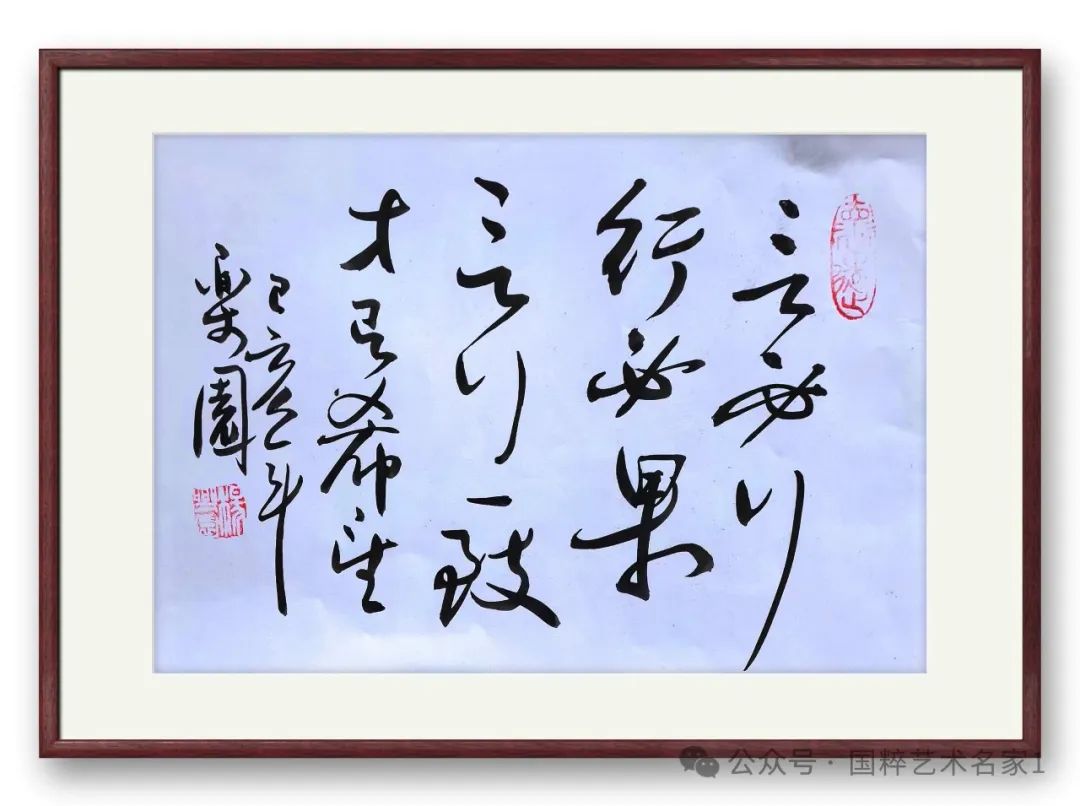 言必行
行必果
言行一致
才是希望
己亥年
樂園
公众号 · 国粹艺术名家1